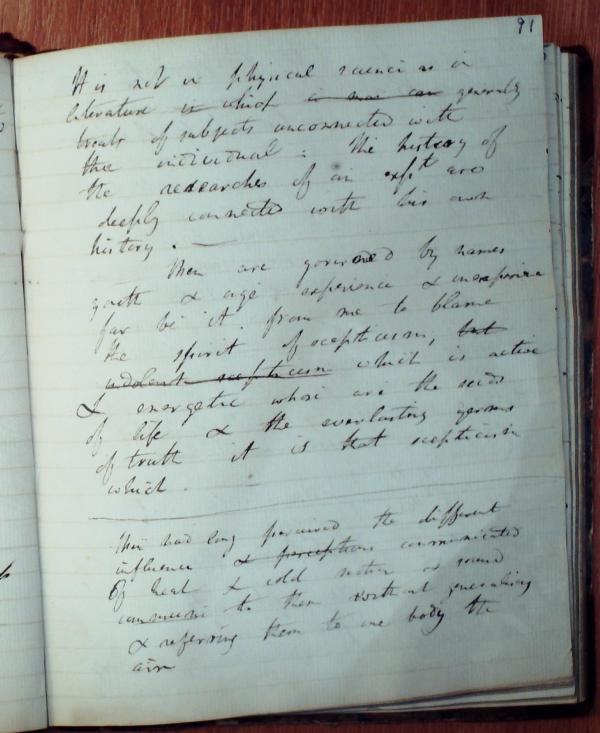 91
It is not in physical science as in
literature in which is man can generally
treats of subjects unconnected with
the individual: The history of
the researches of an expt are
deeply connected with his own
history. —
Men are governed by names
youth & age experience & inexperience
far be it from me to blame
the spirit of scepticism, but
indolent scepticism which is active
& energetic whose are the seeds
of life & the everlasting germs
of truth it is that scepticism
which
They had long perceived the different
influence & perceptions communicated
Of heat & cold motion & sound
to them without generalising
& referring them to one body the
air